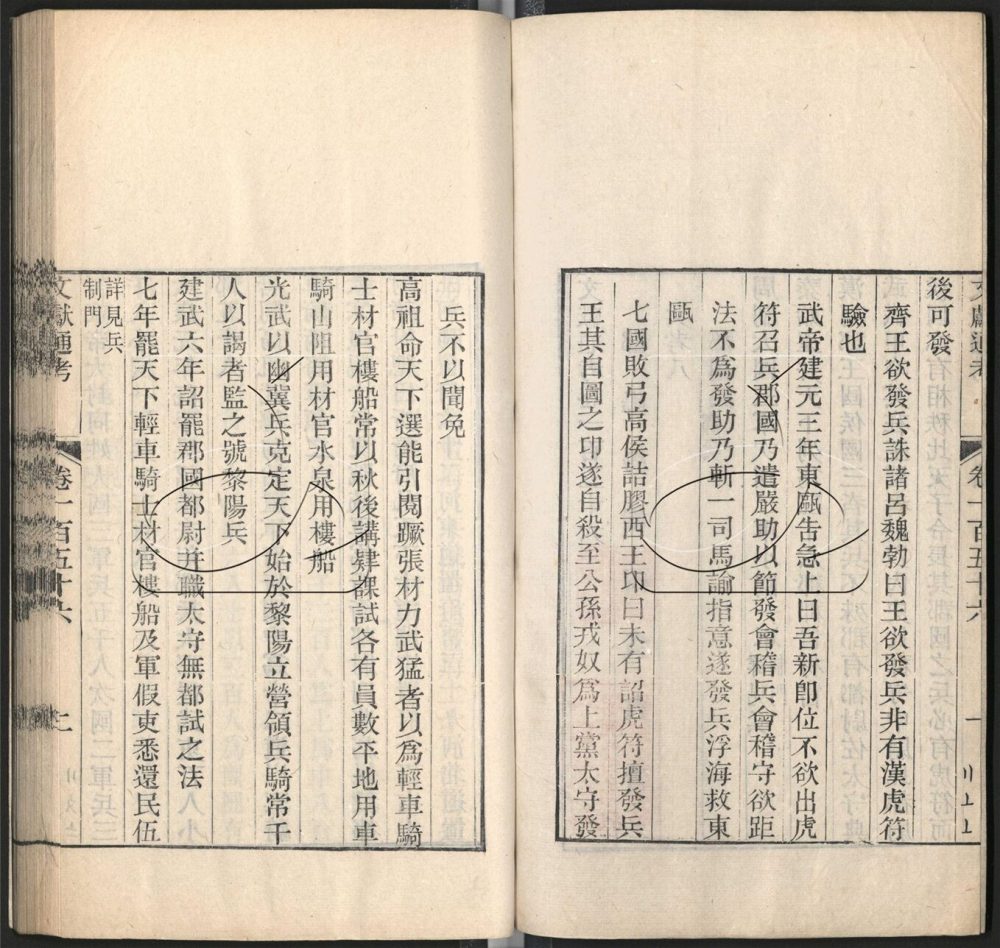 文獻通考 卷一百五十六
後可發
齊王欲發兵誅諸呂魏勃曰王欲發兵非有漢虎符
驗也
武帝建元三年東甌告急上曰吾新卽位不欲出虎
符召兵郡國乃遣嚴助以節發會稽兵會稽守欲距
法不爲發助乃斬一司馬諭指意遂發兵浮海救東
甌
七國敗弓高侯詰膠西王卬曰未有詔虎符擅發兵
王其自圖之卬遂自殺至公孫戎奴爲上黨太守發
兵不以聞免
高祖命天下選能引閱蹶張材力武猛者以爲輕車騎
士材官樓船常以秋後講肄課試各有員數平地用車
騎山阻用材官水泉用樓船
光武以幽冀兵克定天下始於黎陽立營領兵騎常千
人以謁者監之號黎陽兵
建武六年詔罷郡國都尉并職太守無都試之法
七年罷天下輕車騎士材官樓船及軍假吏悉還民伍
詳見兵
制門
文獻通考 卷一百五十六